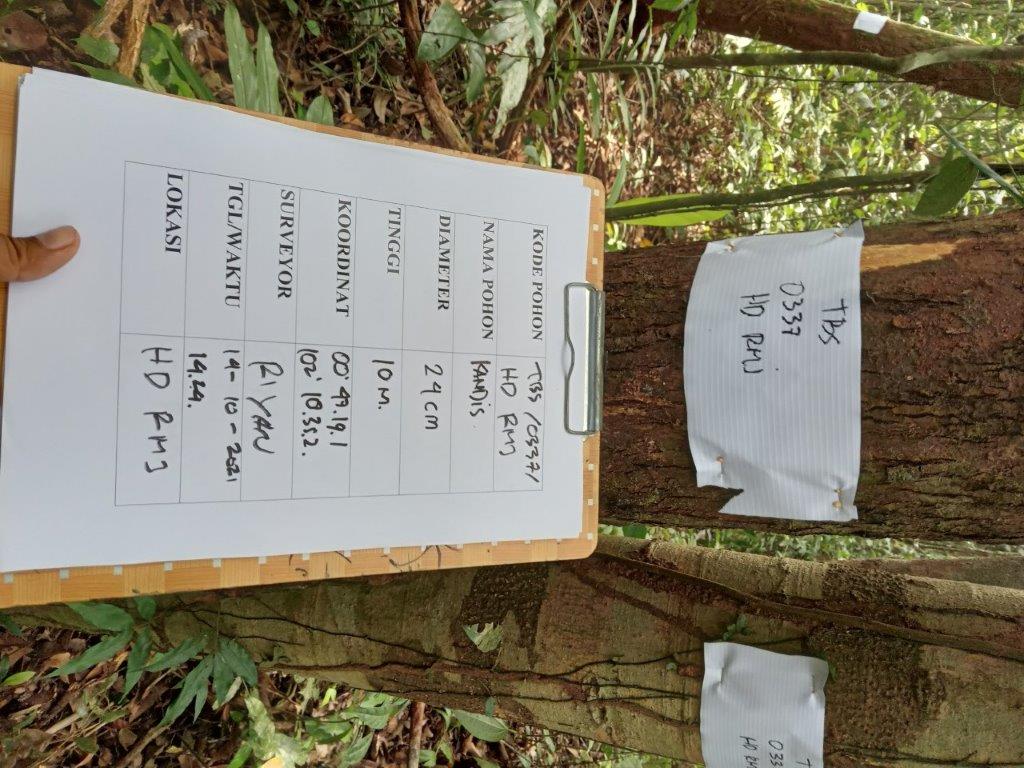 TBS
0337
HD RMJ
T
033
HD R
KODE POHON TBS /0337/
HD RMJ
NAMA POHON KANDIS
DIAMETER 24 cm
TINGGI 10 M.
KOORDINAT 00° 49.19.1
102° 10.35.2.
SURVEYOR RIYAN
TGL/WAKTU 14-10-2021
14.24.
LOKASI HD RMJ